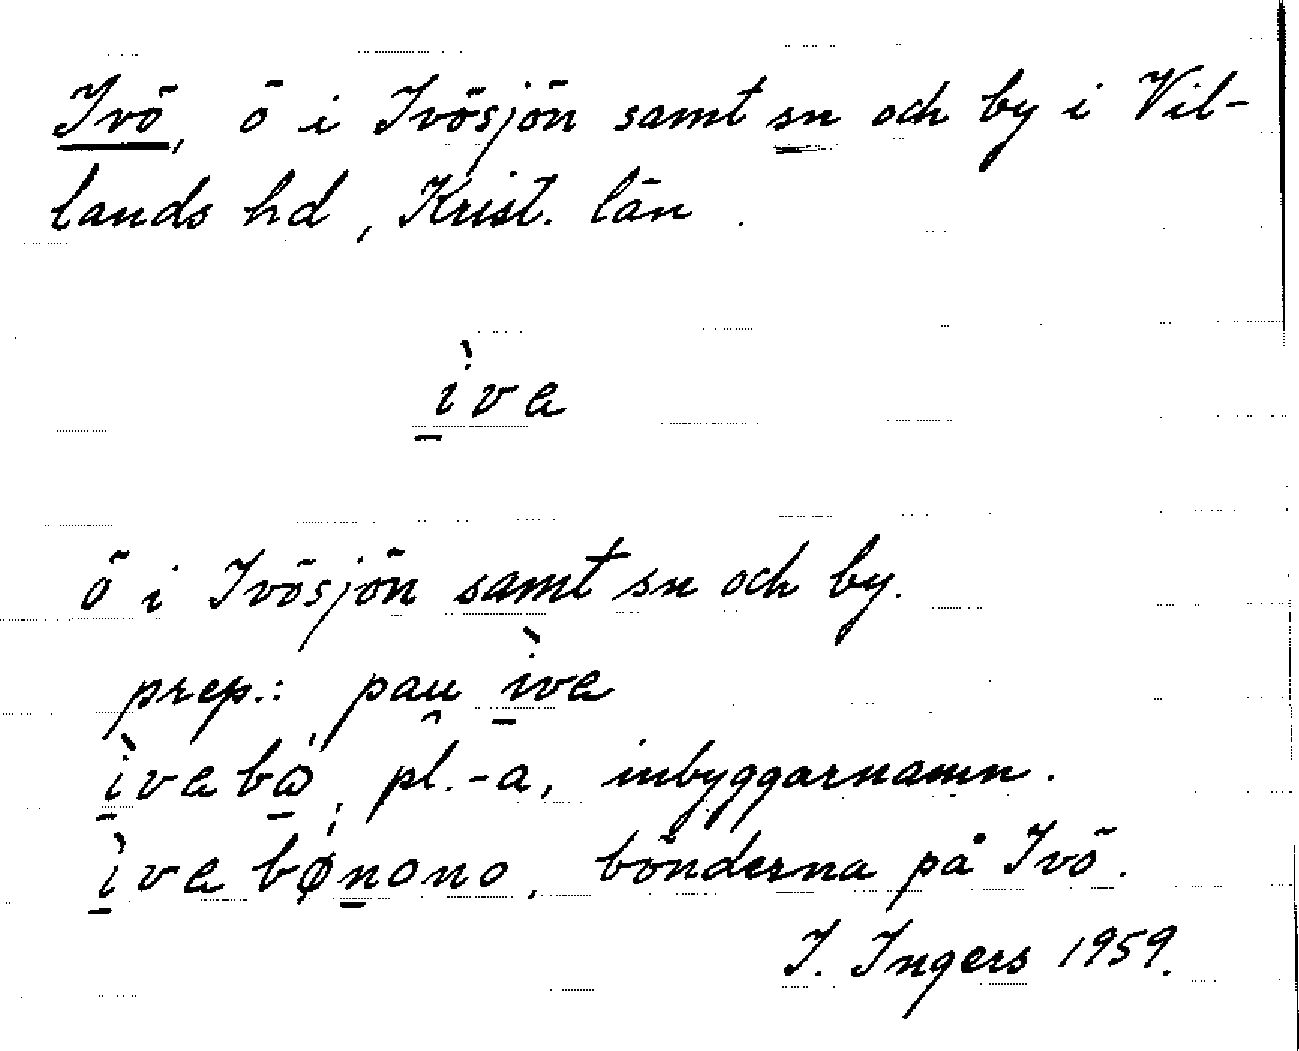 Ivö, ö i Ivösjön samt sn och by i Vil-
lands hd, Krist. län.
ìva
ö i Ivösjön samt sn och by.
prep.: pau̯ ìva
ìvabó, pl. -a, inbyggarnamn.
ìvabǿnono, bönderna på Ivö.
I. Ingers 1959.